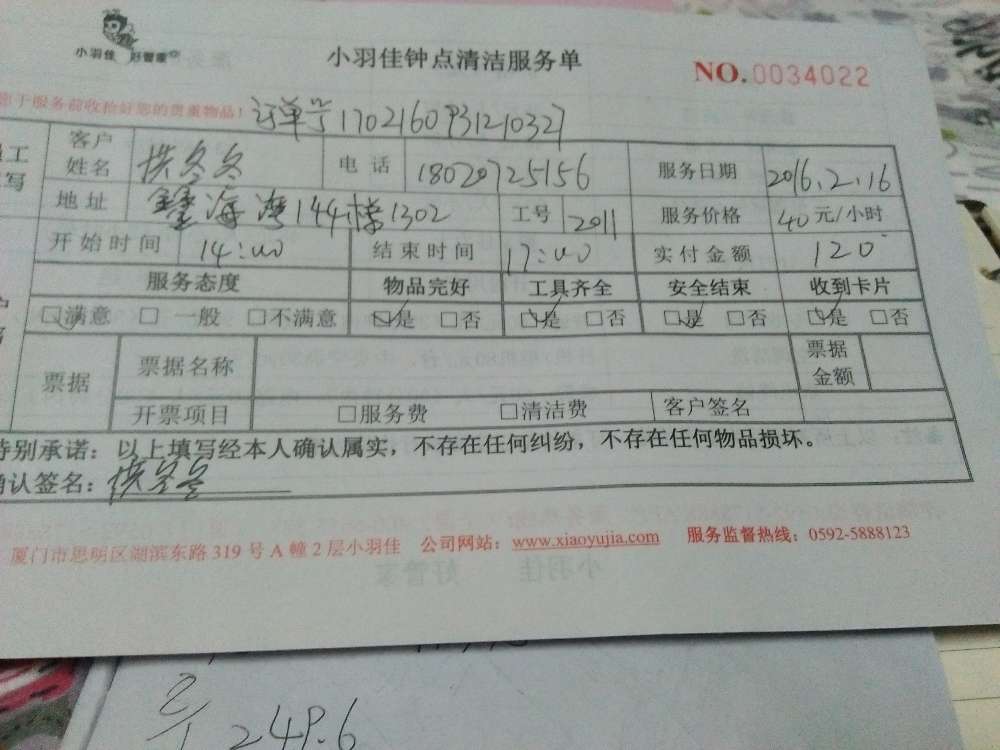 小羽佳 好管家
小羽佳钟点清洁服务单
NO.0034022
于服务前收拾好您的贵重物品!
订单号1702160931210327
客户姓名 洪冬冬 电话 18020725156 服务日期 2016.2.16
地址 鑫海湾144栋1302 工号 2011 服务价格 40元/小时
开始时间 14:00 结束时间 17:00 实付金额 120
服务态度 物品完好 工具齐全 安全结束 收到卡片
☑满意 □一般 □不满意 ☑是 □否 ☑是 □否 ☑是 □否 ☑是 □否
票据 票据名称 票据金额
开票项目 □服务费 □清洁费 客户签名
特别承诺:以上填写经本人确认属实,不存在任何纠纷,不存在任何物品损坏。
确认签名:洪冬冬
厦门市思明区湖滨东路319号A幢2层小羽佳 公司网站:www.xiaoyujia.com 服务监督热线:0592-5888123
小羽佳 好管家
249.6